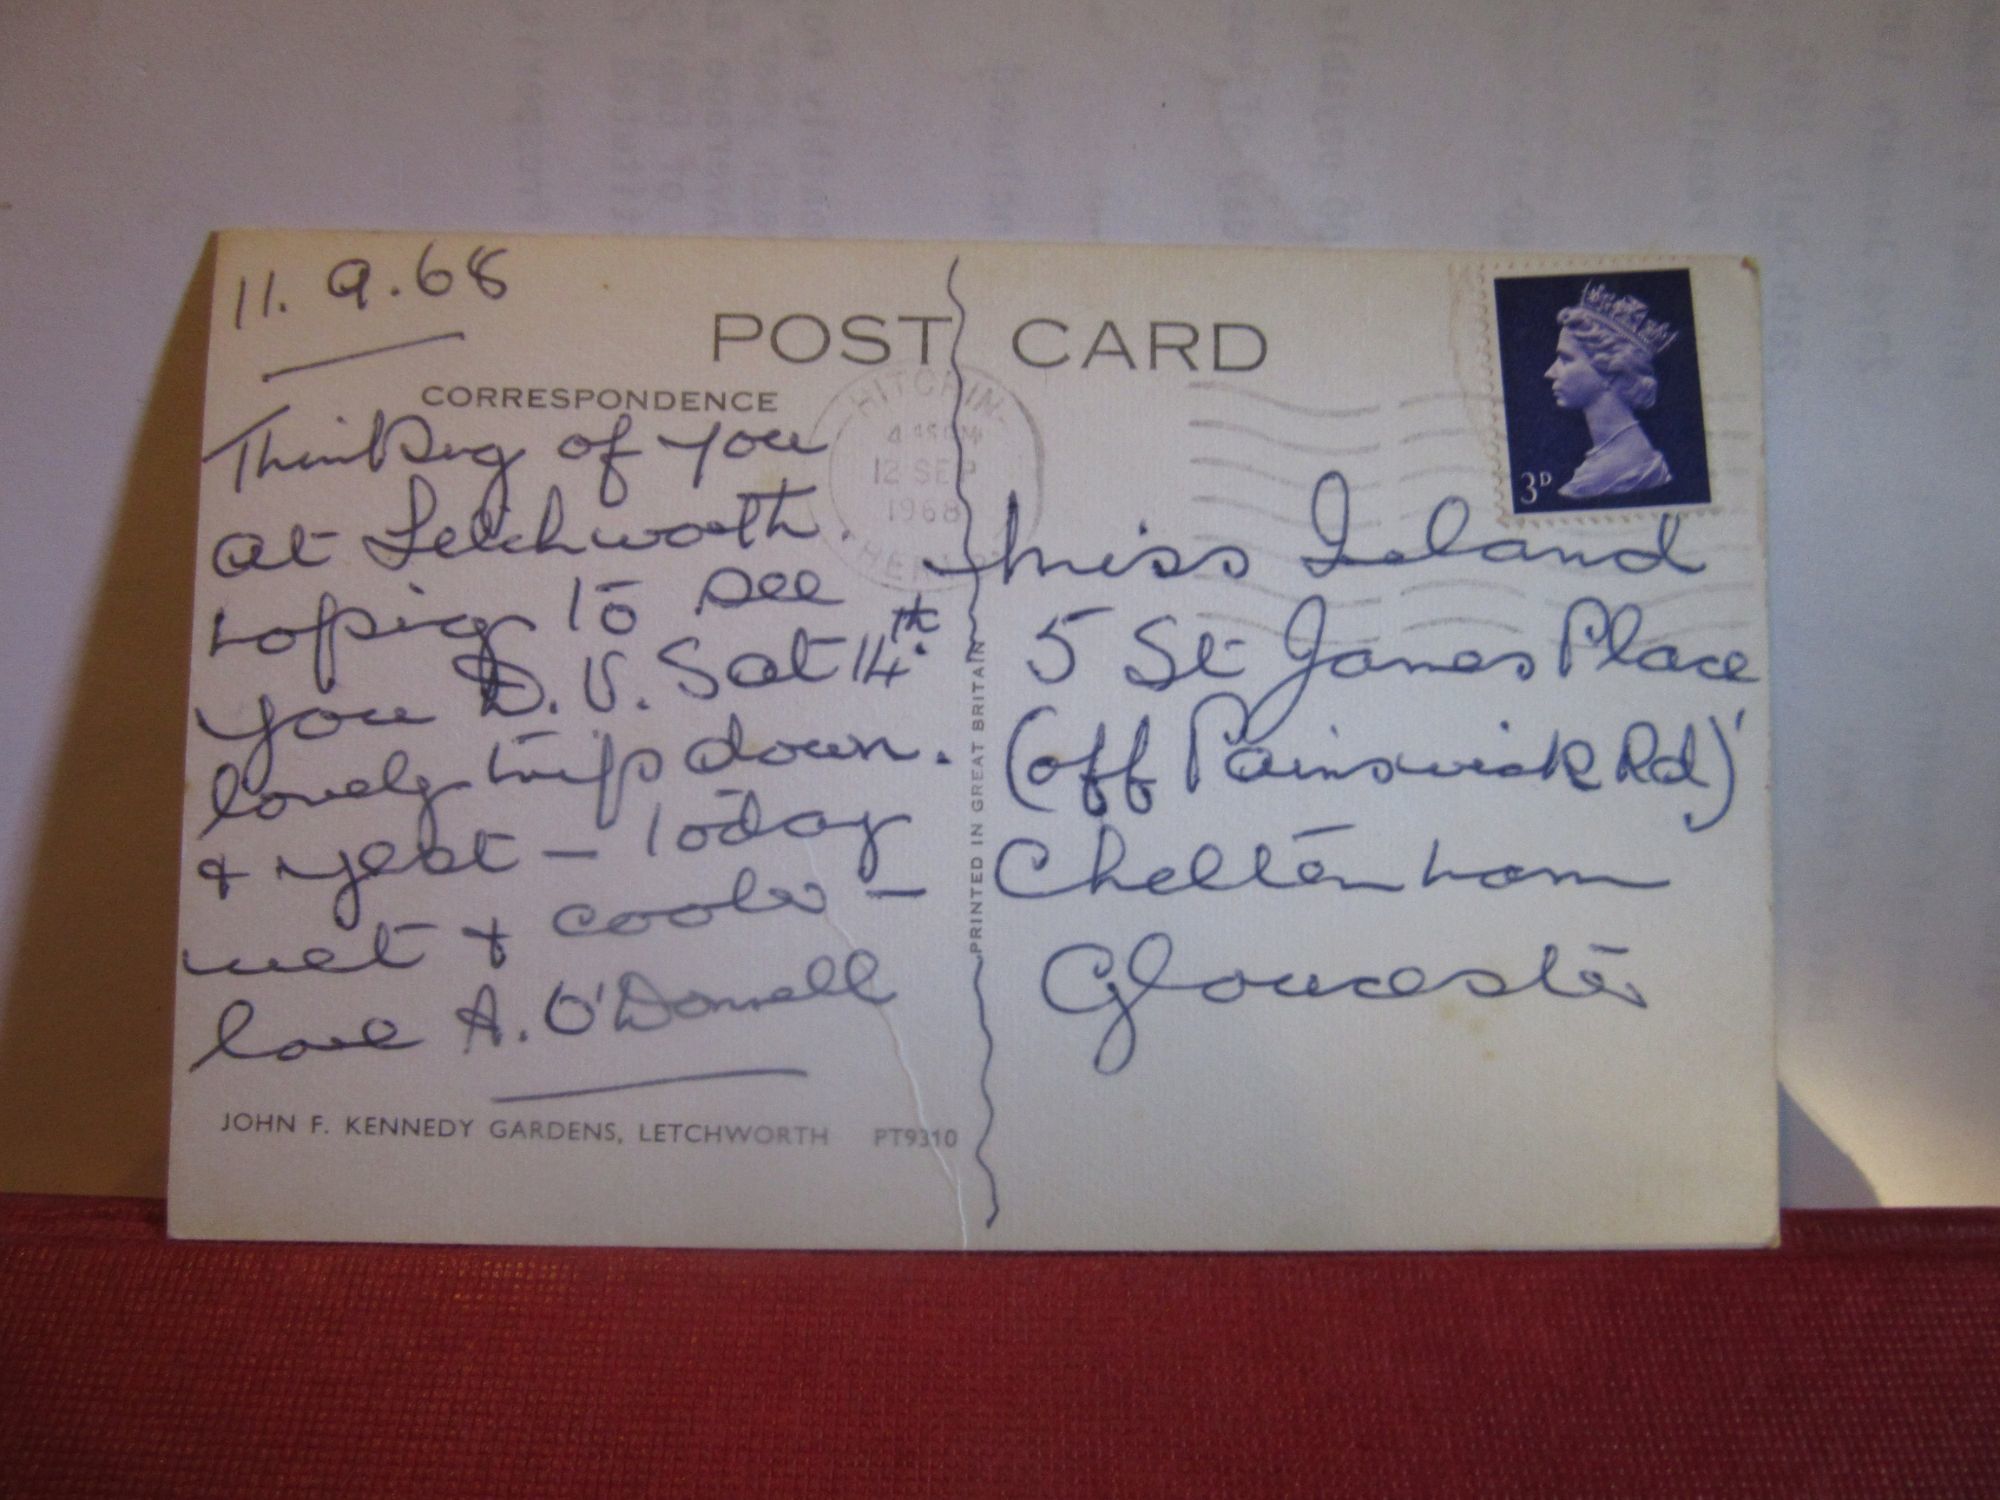 11.9.68
POST CARD
CORRESPONDENCE
Thinking of you
at Letchworth.
hoping to see
you D.V. Sat 14th.
lovely trip down.
& yest – today
wet & cooler –
love A. O'Donnell
JOHN F. KENNEDY GARDENS, LETCHWORTH PT9310
PRINTED IN GREAT BRITAIN
HITCHIN
12 SEP
1968
3D
Miss Island
5 St James Place
(off Painswick Rd)
Cheltenham
Gloucester